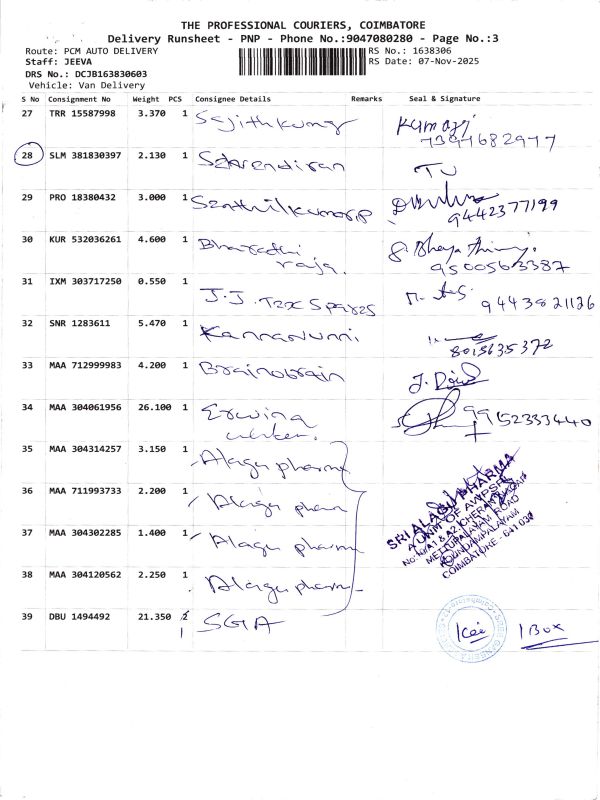 THE PROFESSIONAL COURIERS, COIMBATORE
Delivery Runsheet - PNP - Phone No.:9047080280 - Page No.:3
Route: PCM AUTO DELIVERY RS No.: 1638306
Staff: JEEVA RS Date: 07-Nov-2025
DRS No.: DCJB163830603
Vehicle: Van Delivery
S No Consignment No Weight PCS Consignee Details Remarks Seal & Signature
27 TRR 15587998 3.370 1 Sajithkumar Kumar
7397682977
28 SLM 381830397 2.130 1
29 PRO 18380432 3.000 1
9442377199
30 KUR 532036261 4.600 1 Bharadhi
raja. 9500563387
31 IXM 303717250 0.550 1 J.J. Trx Spares 9443821126
32 SNR 1283611 5.470 1 Kannanunni
8015635372
33 MAA 712999983 4.200 1 Brainobrain
34 MAA 304061956 26.100 1 9952333440
35 MAA 304314257 3.150 1 Alagu pharma
36 MAA 711993733 2.200 1 Alagu pharm
37 MAA 304302285 1.400 1 Alagu pharma
38 MAA 304120562 2.250 1 Alagu pharma
SRI ALAGU PHARMA
METTUPALAYAM ROAD
COIMBATORE - 641 030
39 DBU 1494492 21.350 2 SGA 1 Box
1